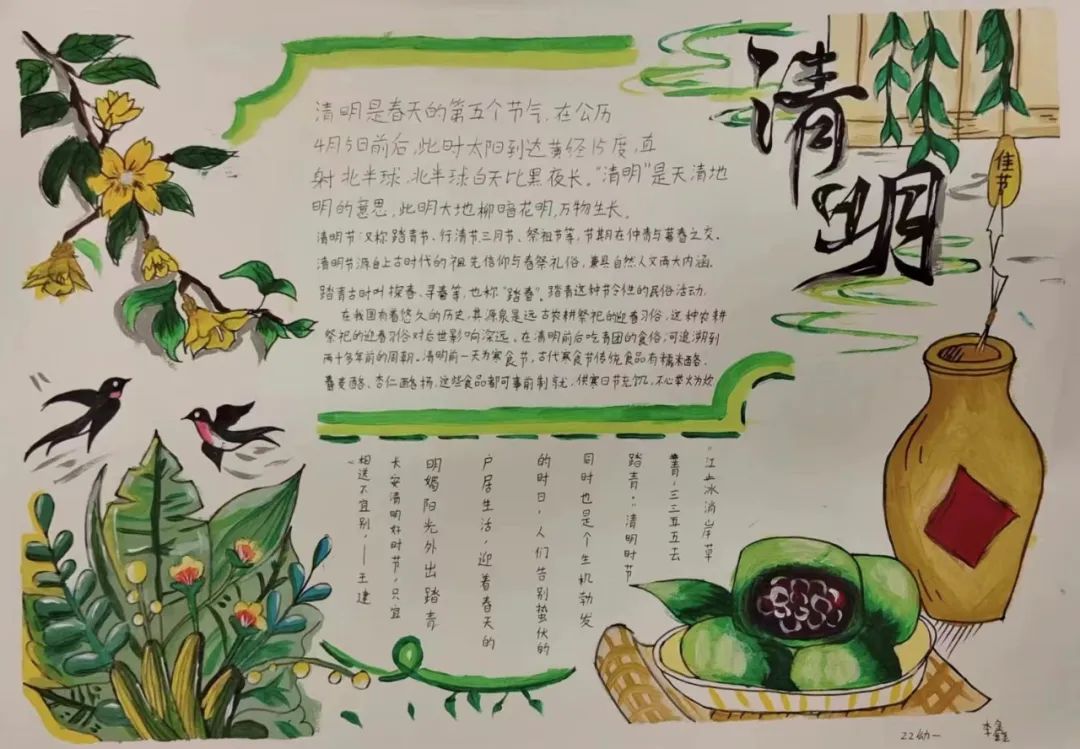 清明
佳节
清明是春天的第五个节气,在公历
4月5日前后,此时太阳到达黄经15度,直
射北半球,北半球白天比黑夜长。“清明”是天清地
明的意思,此明大地柳暗花明,万物生长。
清明节:又称踏青节、行清节、三月节、祭祖节等,节期在仲春与暮春之交。
清明节源自上古时代的祖先信仰与春祭礼俗,兼具自然人文两大内涵。
踏青古时叫探春、寻春等,也称“踏春”。踏青这种节令性的民俗活动,
在我国有着悠久的历史,其源泉是远古农耕祭祀的迎春习俗,这种农耕
祭祀的迎春习俗对后世影响深远。在清明前后吃青团的食俗,可追溯到
两千多年前的周朝。清明前一天为寒食节,古代寒食节传统食品有糯米酪、
麦酪、杏仁酪,这些食品都可事前制就,供寒日节充饥,不心举火为炊
“江上冰消岸草
青,三三五五去
踏青。”清明时节
同时也是个生机勃发
的时日,人们告别蛰伏的
户居生活,迎着春天的
明媚阳光外出踏青
长安清明好时节,只宜
相送不宜别,——王建
22幼一
李鑫